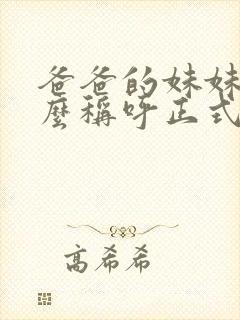 爸爸的妹妹
麼稱呼正式
高希希